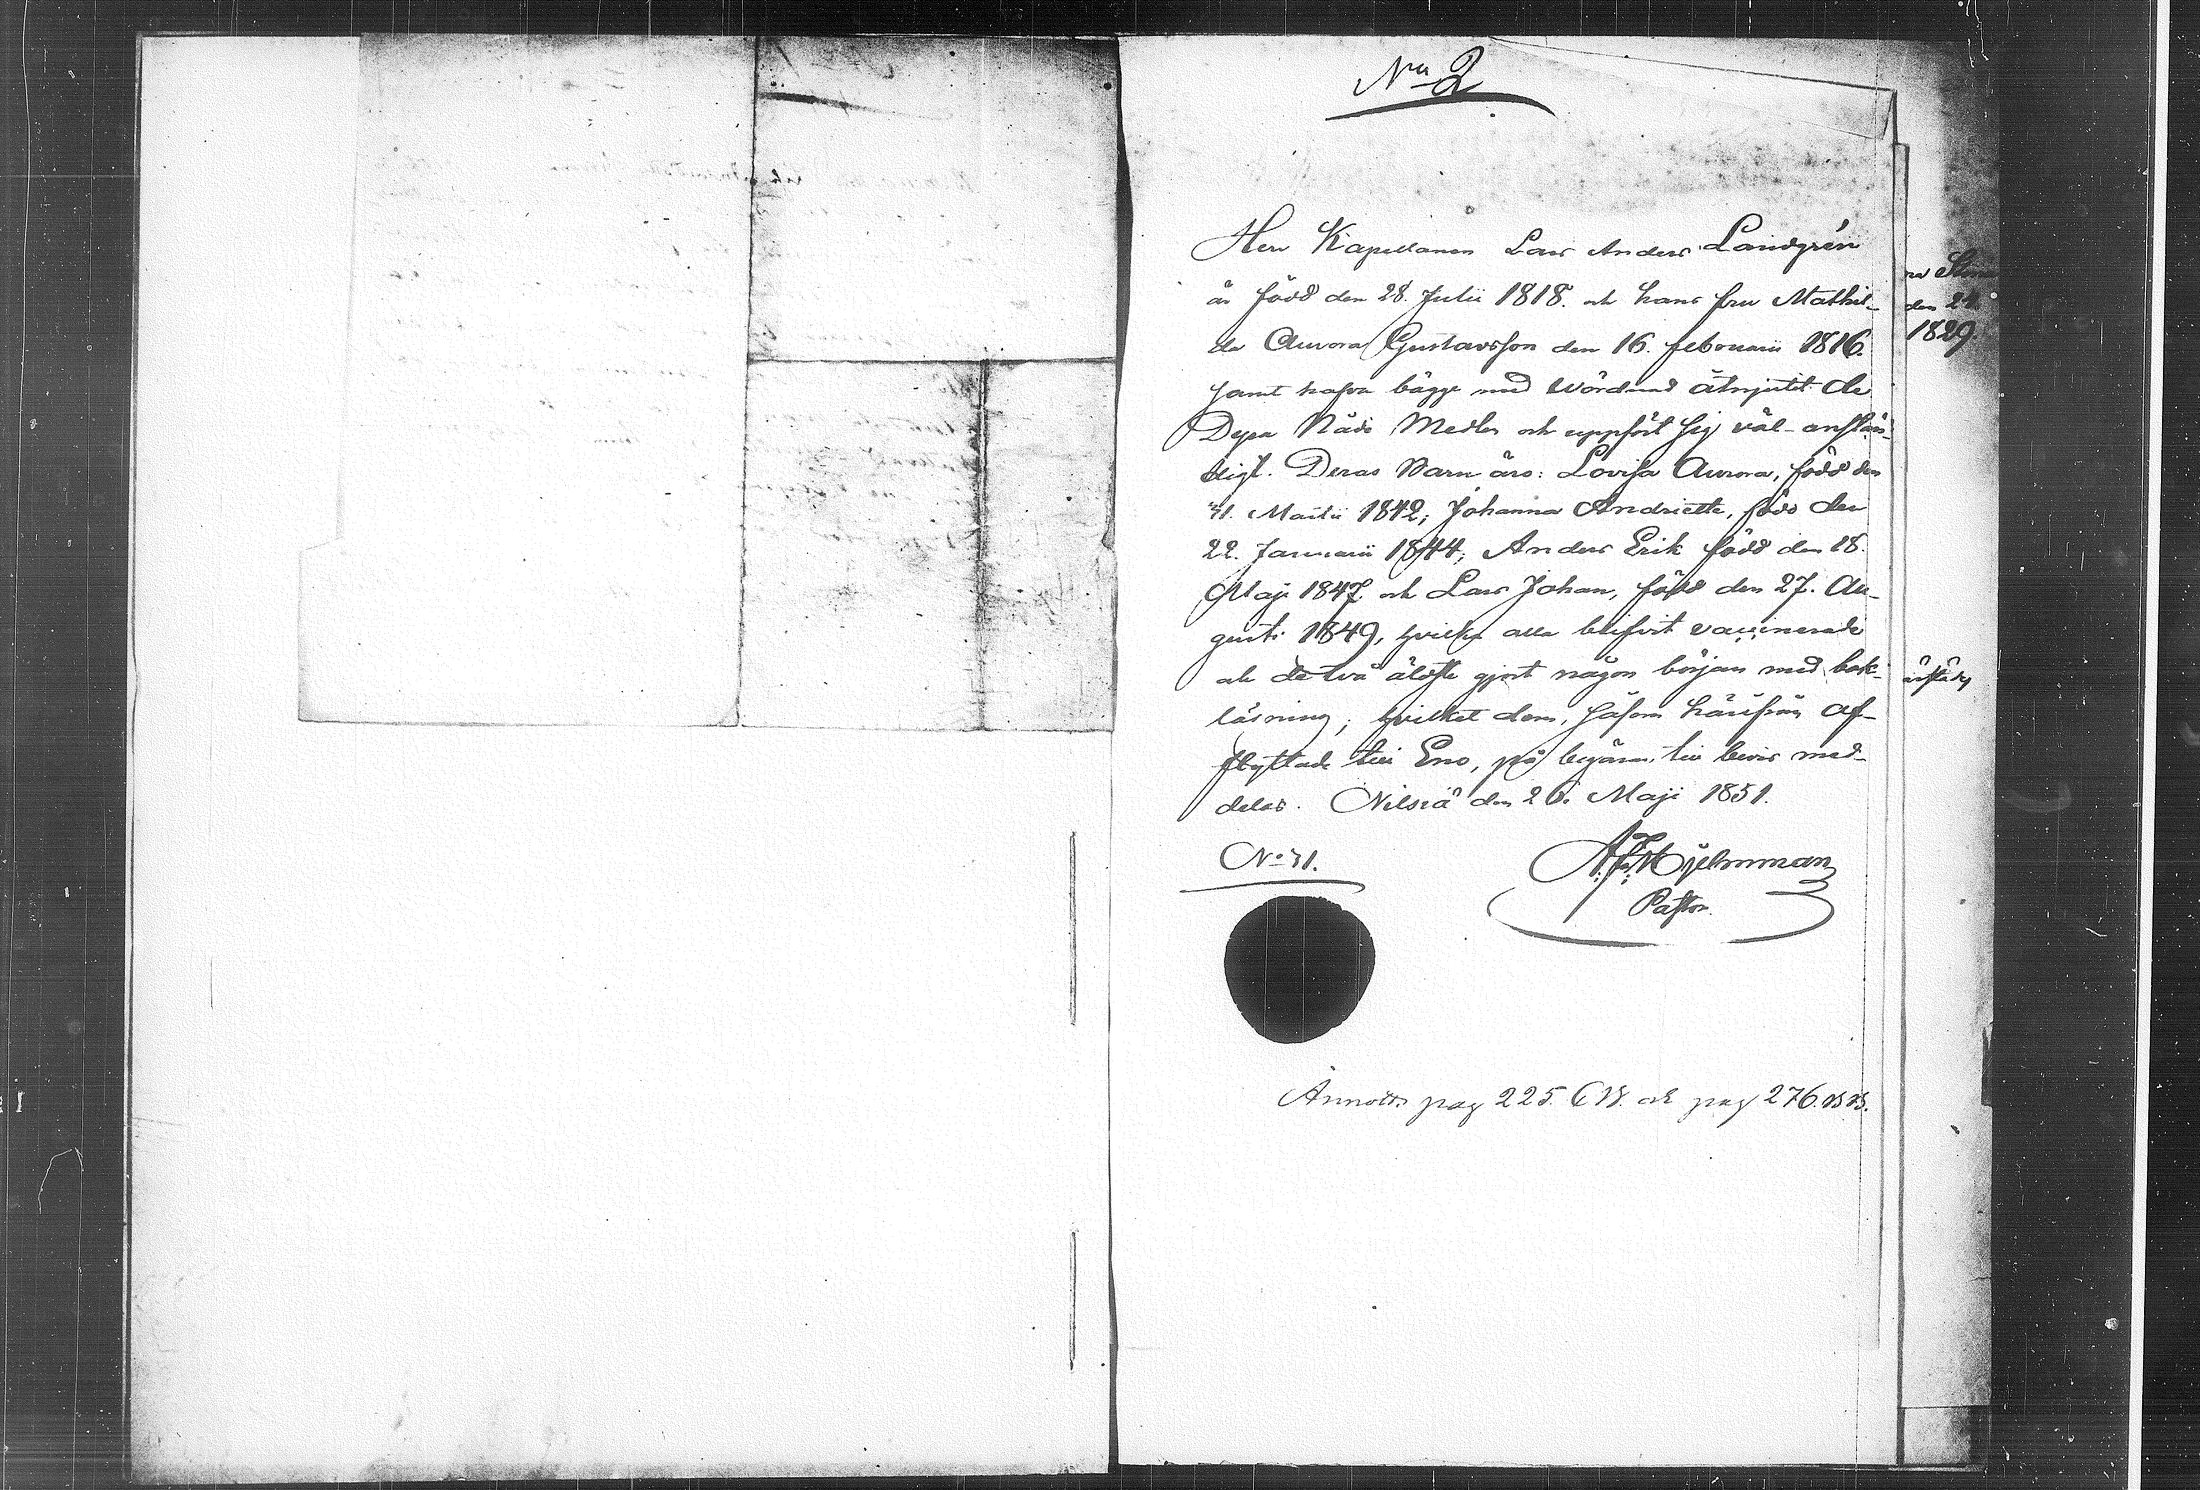 No 2
Herr Kapellanen Lars Anders Landgrén
är född den 28. Julii 1818. och hans fru Mathil-
da Aurora Gustavsson den 16. februarii 1816.
samt hafva bägge med wördnad åtnjutit de
Dyra Nåde Medlen och uppfört sig väl-anstän-
digt. Deras Barn äro: Lovisa Aurora, född den
31. Martii 1842; Johanna Andriette, född den
22. Januarii 1844; Anders Erik född den 18.
Maji 1847 och Lars Johan, född den 27. Au-
gusti 1849, hvilka alla blifvit vaccinerade
och de två äldste gjort någon början med bok-
läsning; hvilket dem, såsom härifrån af-
flyttade till Eno, på begäran till bevis med-
delas. Nilsiä den 26. Maji 1851.
No 31.
Hjelmman
Pastor.
Annoter. pag 225. CB. och pag 276. BB.
den 24
1829.